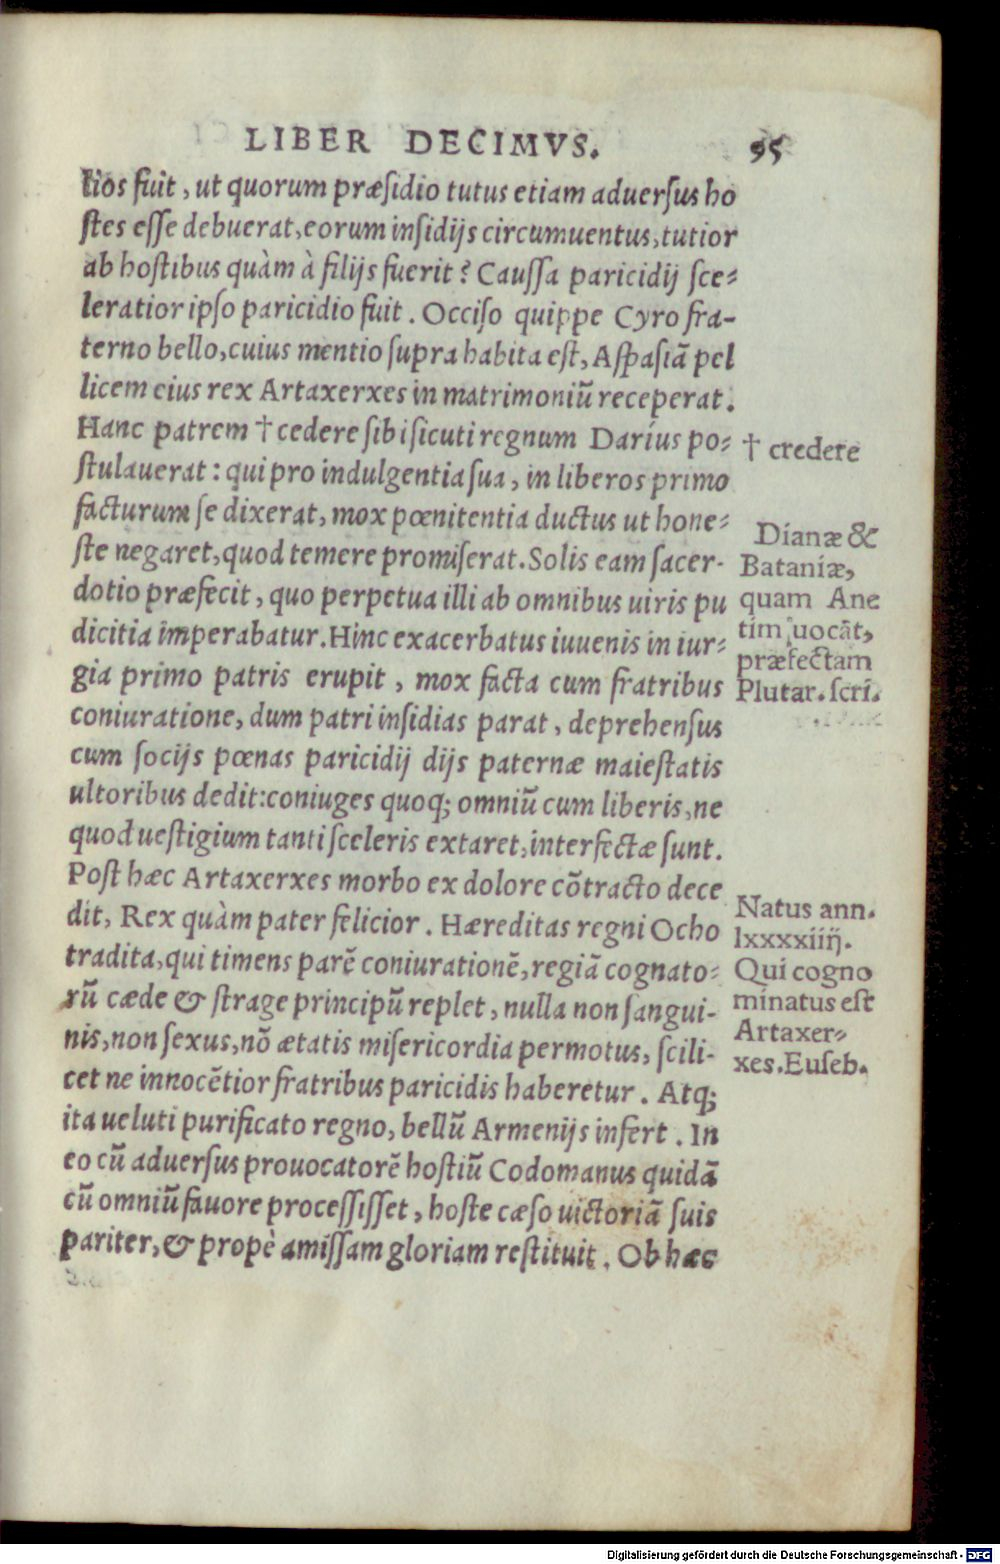 LIBER DECIMVS. 95
lios fuit, ut quorum præsidio tutus etiam aduersus ho
stes esse debuerat, eorum insidijs circumuentus, tutior
ab hostibus quàm à filijs fuerit? Caussa paricidij sce-
leratior ipso paricidio fuit. Occiso quippe Cyro fra-
terno bello, cuius mentio supra habita est, Aspasiã pel
licem eius rex Artaxerxes in matrimoniũ receperat.
Hanc patrem † cedere sibi sicuti regnum Daríus po-
stulauerat: qui pro indulgentia sua, in liberos primo
facturum se dixerat, mox pœnitentia ductus ut hone-
ste negaret, quod temere promiserat. Solis eam sacer-
dotio præfecit, quo perpetua illi ab omnibus uiris pu
dicitia imperabatur. Hinc exacerbatus iuuenis in iur-
gia primo patris erupit, mox facta cum fratribus
coniuratione, dum patri insidias parat, deprehensus
cum socijs pœnas paricidij dijs paternæ maiestatis
ultoribus dedit: coniuges quoq; omniũ cum liberis, ne
quod uestigium tanti sceleris extaret, interfectæ sunt.
Post hæc Artaxerxes morbo ex dolore cõtracto dece
dit, Rex quàm pater felicior. Hæreditas regni Ocho
tradita, qui timens parẽ coniurationẽ, regiã cognato-
rũ cæde & strage principũ replet, nulla non sangui-
nis, non sexus, nõ ætatis misericordia permotus, scili-
cet ne innocẽtior fratribus paricidis haberetur. Atq;
ita ueluti purificato regno, bellũ Armenijs infert. In
eo cũ aduersus prouocatorẽ hostiũ Codomanus quidã
cũ omniũ fauore processisset, hoste cæso uictoriã suis
pariter, & propè amissam gloriam restituit. Ob hæc
† credere
Dianæ &
Bataníæ,
quam Ane
tim uocãt,
præfectam
Plutar. scri.
Natus ann.
lxxxxiiij.
Qui cogno
minatus est
Artaxer-
xes. Euseb.
Digitalisierung gefördert durch die Deutsche Forschungsgemeinschaft - DFG